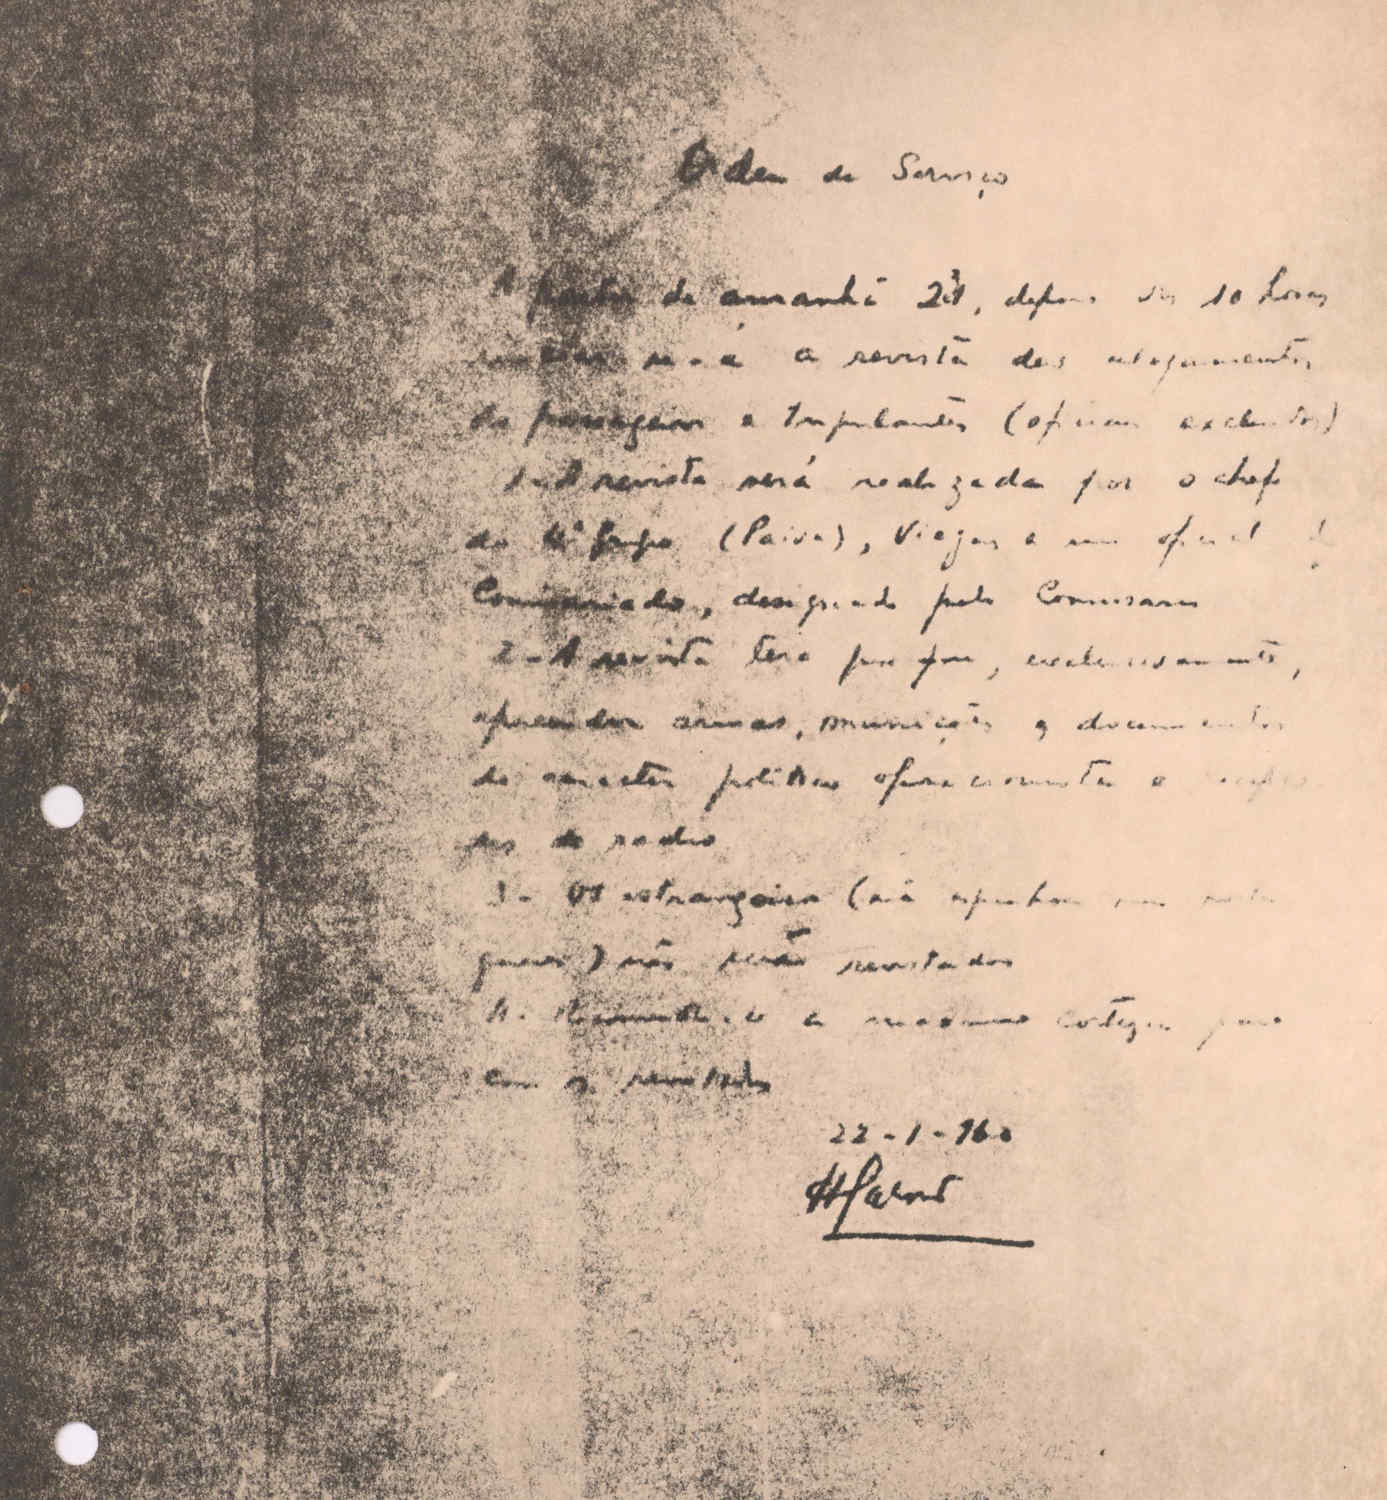 Ordem de Serviço
A partir de amanhã 23, depois das 10 horas
será a revista dos alojamentos
de passageiros e tripulantes (oficiais excluidos)
1- A revista será realizada por o chefe
do 4º Grupo (Paiva), Viegas e um oficial
Comissariado, designado pelo Comissario
2- A revista terá por fim, exclusivamente,
apreender armas, munições e documentos
de caracter politico oposicionista e
de radio
3- Os estrangeiros
não serão revistados
4- Recomenda-se a maxima cortezia para
com os revistados
22-1-96